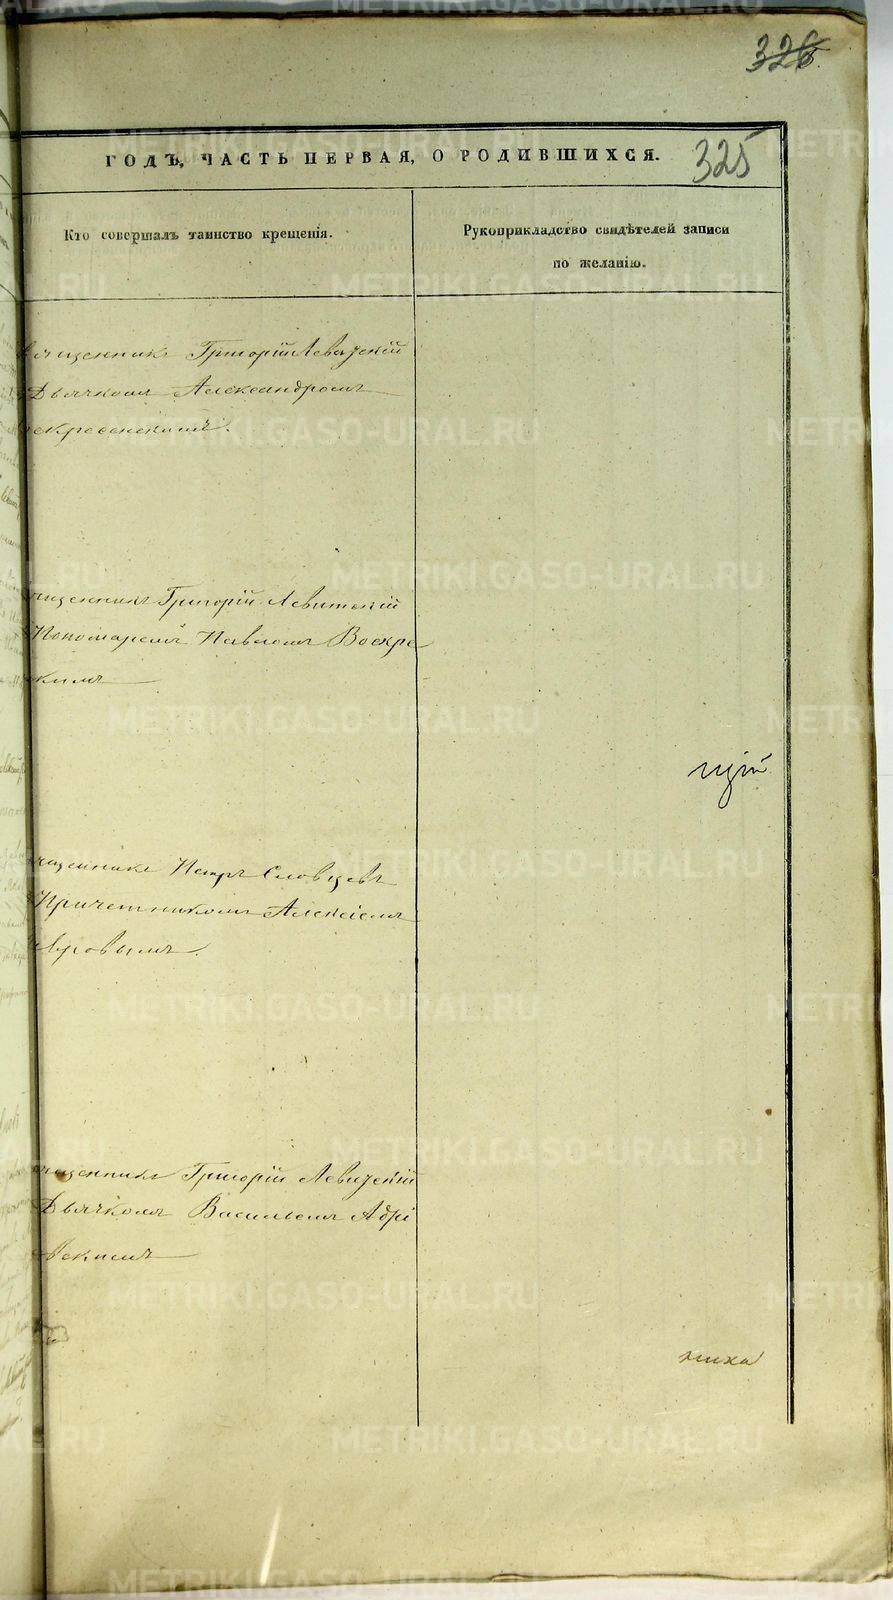 326
325
ГОДЪ, ЧАСТЬ ПЕРВАЯ, О РОДИВШИХСЯ.
Кто совершалъ таинство крещенія.
Рукоприкладство свидѣтелей записи
по желанію.
священникъ Григорій Левицкій
Дьячкомъ Александромъ
скресенскимъ.
щенникъ Григорій Левитскій
Пономаремъ Павломъ Воскре
скимъ
щенникъ Петръ Словцевъ
Причетникомъ Алексіемъ
авровымъ.
щенникъ Григорій Левицкій
Дьячкомъ Василіемъ Адрі
евскимъ
METRIKI.GASO-URAL.RU